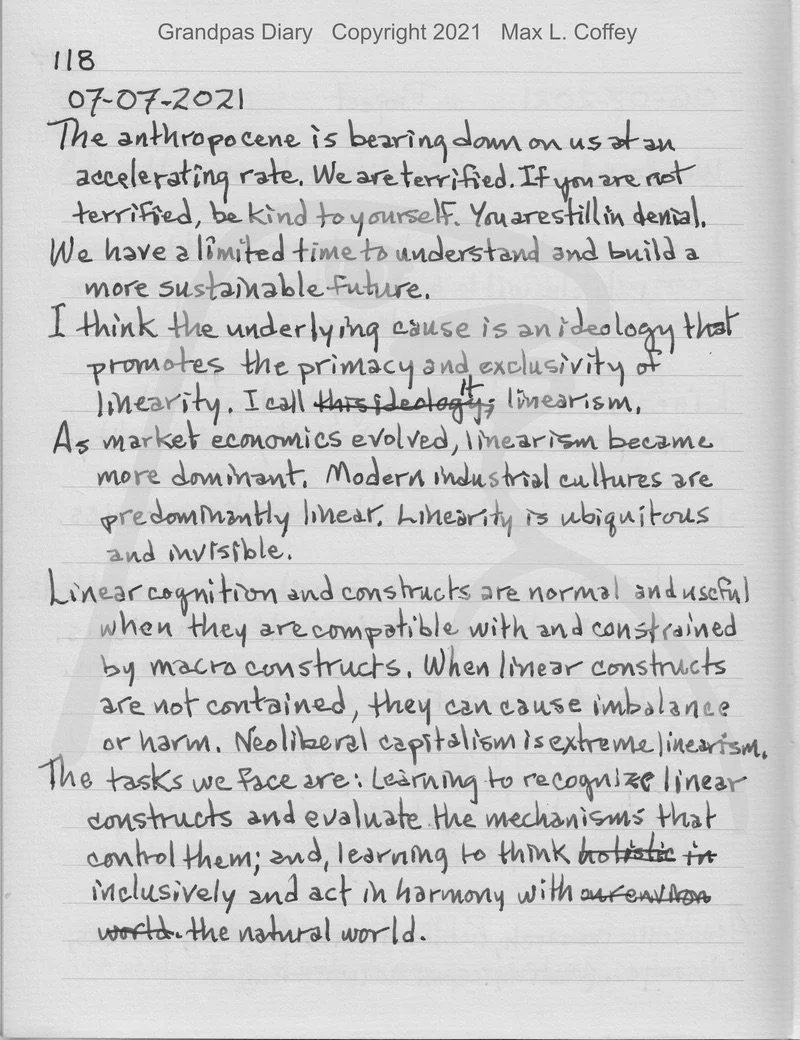 Grandpas Diary Copyright 2021 Max L. Coffey
118
07-07-2021
The anthropocene is bearing down on us at an
accelerating rate. We are terrified. If you are not
terrified, be kind to yourself. You are still in denial.
We have a limited time to understand and build a
more sustainable future.
I think the underlying cause is an ideology that
promotes the primacy and exclusivity of
it
linearity. I call this ideology; linearism.
As market economics evolved, linearism became
more dominant. Modern industrial cultures are
predominantly linear. Linearity is ubiquitous
and invisible.
Linear cognition and constructs are normal and useful
when they are compatible with and constrained
by macro constructs. When linear constructs
are not contained, they can cause imbalance
or harm. Neoliberal capitalism is extreme linearism.
The tasks we face are: Learning to recognize linear
constructs and evaluate the mechanisms that
control them; and, learning to think holistic in
inclusively and act in harmony with our environ
world. the natural world.